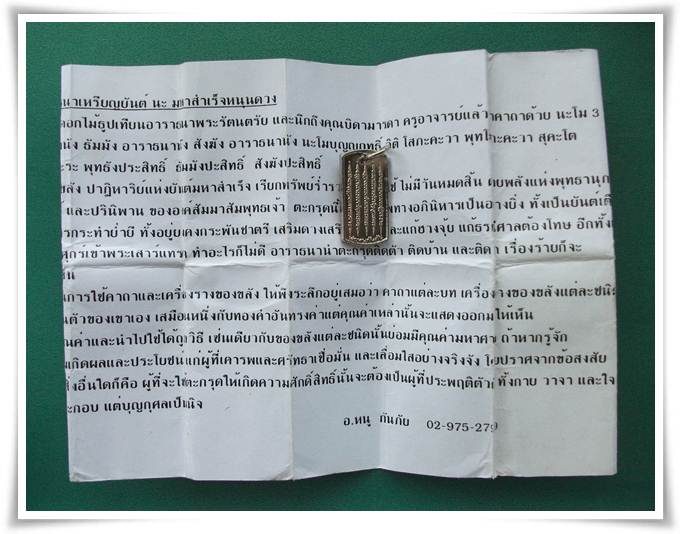 นาเหรียญยันต์ นะ มหาสำเร็จหนุนดวง
ดอกไม้ธูปเทียนอาราธนาพระรัตนตรัย และนึกถึงคุณบิดามารดา ครูอาจารย์แล้ว คาถาด้วย นะโม 3
นัง ธัมมัง อาราธนานัง สังฆัง อาราธนานัง นะโมบุญญฤทธิ์ อิติ โสภะคะวา พุทโ ภะคะวา สุคะโต
พุทธังประสิทธิ์ ธัมมังปะสิทธิ์ สังฆังปะสิทธิ์
ขลัง ปาฏิหาริย์แห่งยันต์มหาสำเร็จ เรียกทรัพย์ร่ำรวย ใช้ ไม่มีวันหมดสิ้น พลังแห่งพุทธานุภ
และปรินิพาน ของององค์สัมมาสัมพุทธเจ้า ตะกรุดนี้ ทางอภินิหารเป็นอย่างยิ่ง ทั้งเป็นยันต์เดี
รกระทำย่ำยี ทั้งอยู่ยงคงกระพันชาตรี เสริมดวงเสริ และแก้ฮวงจุ้ย แก้ธรณีศาลต้องโทษ อีกทั้ง
ศุกร์เข้าพระเสาร์แทรก ทำอะไรก็ไม่ดี อาราธนานำตะกรุดติดตัว ติดบ้าน และติด เรื่องร้ายก็จะ
การใช้คาถาและเครื่องรางของขลัง ให้พึงระลึกอยู่เสมอว่า คาถาแต่ละบท เครื่องรางของขลังแต่ละชนิด
นตัวของเขาเอง เสมือนหนึ่งกับทองคำอันทรงค่าแต่คุณค่าเหล่านั้นจะแสดงออกมาให้เห็น
คุณค่าและนำไปใช้ได้ถูกวิธี เช่นเดียวกับของขลังแต่ละชนิดนั้นย่อมมีคุณค่ามหาศาล ถ้าหากรู้จัก
เกิดผลและประโยชน์แก่ผู้ที่เคารพและศรัทธาเชื่อมั่น และเลื่อมใสอย่างจริงจัง โดยปราศจากข้อสงสัย
สิ่งอื่นใดก็คือ ผู้ที่จะใช้ตะกรุดให้เกิดความศักดิ์สิทธิ์นั้นจะต้องเป็นผู้ที่ประพฤติตัว ทั้งกาย วาจา และใจ
ะกอบ แต่บุญกุศลเป็นนิจ
อ.หนู กันภัย 02-975-279